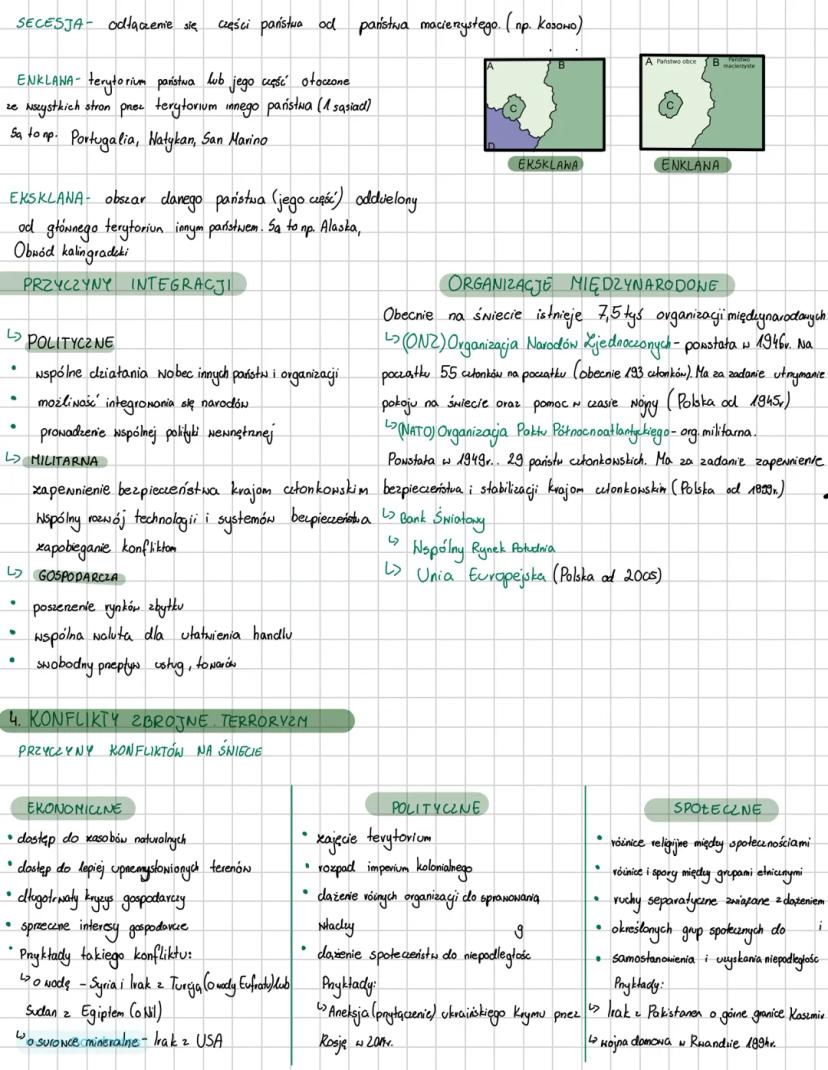 SECESJA - odłączenie się części państwa od państwa macierzystego. (np. Kosowo)
ENKLAWA - terytorium państwa lub jego część otoczone
ze wszystkich stron przez terytorium innego państwa (1 sąsiad)
Są to np. Portugalia, Watykan, San Marino
A
B
C
D
EKSKLAWA
A Państwo obce
B Państwo macierzyste
C
ENKLAWA
EKSKLAWA - obszar danego państwa (jego część) oddzielony
od głównego terytorium innym państwem. Są to np. Alaska,
Obwód kalingradzki
PRZYCZYNY INTEGRACJI
↳ POLITYCZNE
• wspólne działania wobec innych państw i organizacji
• możliwość integrowania się narodów
• prowadzenie wspólnej polityki wewnętrznej
↳ MILITARNA
zapewnienie bezpieczeństwa krajom członkowskim
Wspólny rozwój technologii i systemów bezpieczeństwa
zapobieganie konfliktom
↳ GOSPODARCZA
• poszerzenie rynków zbytku
• wspólna waluta dla ułatwienia handlu
• swobodny przepływ usług, towarów
ORGANIZACJE MIĘDZYNARODOWE
Obecnie na świecie istnieje 7,5 tyś organizacji międzynarodowych
↳ (ONZ) Organizacja Narodów Zjednoczonych - powstała w 1946r. Na
początku 55 członków na początku (obecnie 193 członków). Ma za zadanie utrzymanie
pokoju na świecie oraz pomoc w czasie wojny (Polska od 1945r)
↳ (NATO) Organizacja Paktu Północnoatlantyckiego - org. militarna.
Powstała w 1949r.. 29 państw członkowskich. Ma za zadanie zapewnienie
bezpieczeństwa i stabilizacji krajom członkowskim (Polska od 1999r.)
↳ Bank Światowy
↳ Wspólny Rynek Południa
↳ Unia Europejska (Polska od 2005)
4. KONFLIKTY ZBROJNE. TERRORYZM
PRZYCZYNY KONFLIKTÓW NA ŚWIECIE
EKONOMICZNE
• dostęp do zasobów naturalnych
• dostęp do lepiej uprzemysłowionych terenów
• długotrwały kryzys gospodarczy
• sprzeczne interesy gospodarcze
• Przykłady takiego konfliktu:
↳ o wodę - Syria i Irak z Turcją (o wody Eufratu) lub
Sudan z Egiptem (o Nil)
↳ o surowce mineralne - Irak z USA
POLITYCZNE
• zajęcie terytorium
• rozpad imperium kolonialnego
• dążenie różnych organizacji do sprawowania
władzy g
• dążenie społeczeństw do niepodległośc
Przykłady:
↳ Aneksja (przyłączenie) ukraińskiego Krymu przez
Rosję w 2014r.
SPOŁECZNE
• różnice religijne między społecznościami
• różnice i spory między grupami etnicznymi
• ruchy separatyczne związane z dążeniem
• określonych grup społecznych do i
• samostanowienia i uzyskania niepodległośc
Przykłady:
↳ Irak z Pakistanem o górne granice Kaszmir
↳ wojna domowa w Rwandzie 1994r.